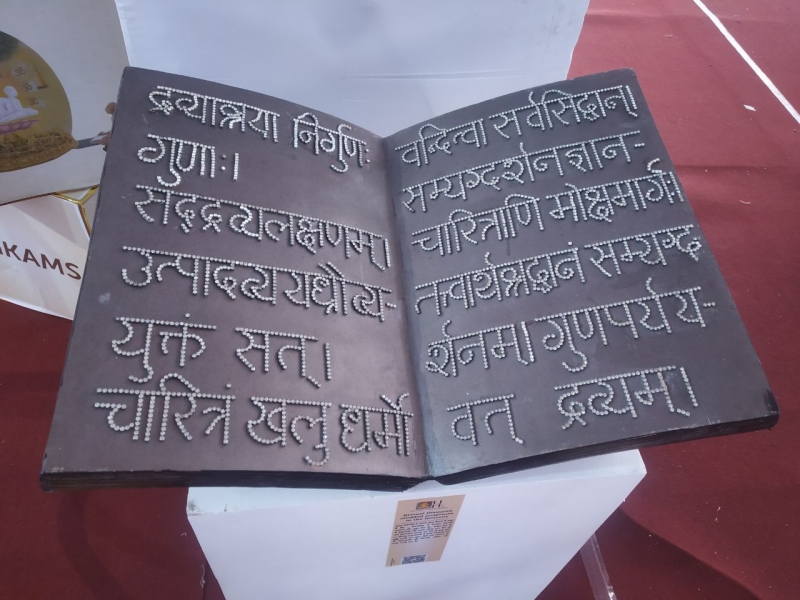 द्रव्याश्रया निर्गुणः
गुणाः।
सद्द्रव्यलक्षणम्।
उत्पादव्ययध्रौव्य-
युक्तं सत्।
चारित्रं खलु धर्मो
वन्दित्वा सर्वसिद्धान्
सम्यग्दर्शन ज्ञान-
चारित्राणि मोक्षमार्गः।
तत्वार्थश्रद्धानं सम्यग्द
र्शनम्। गुणपर्यय-
वत् द्रव्यम्।
KAMS